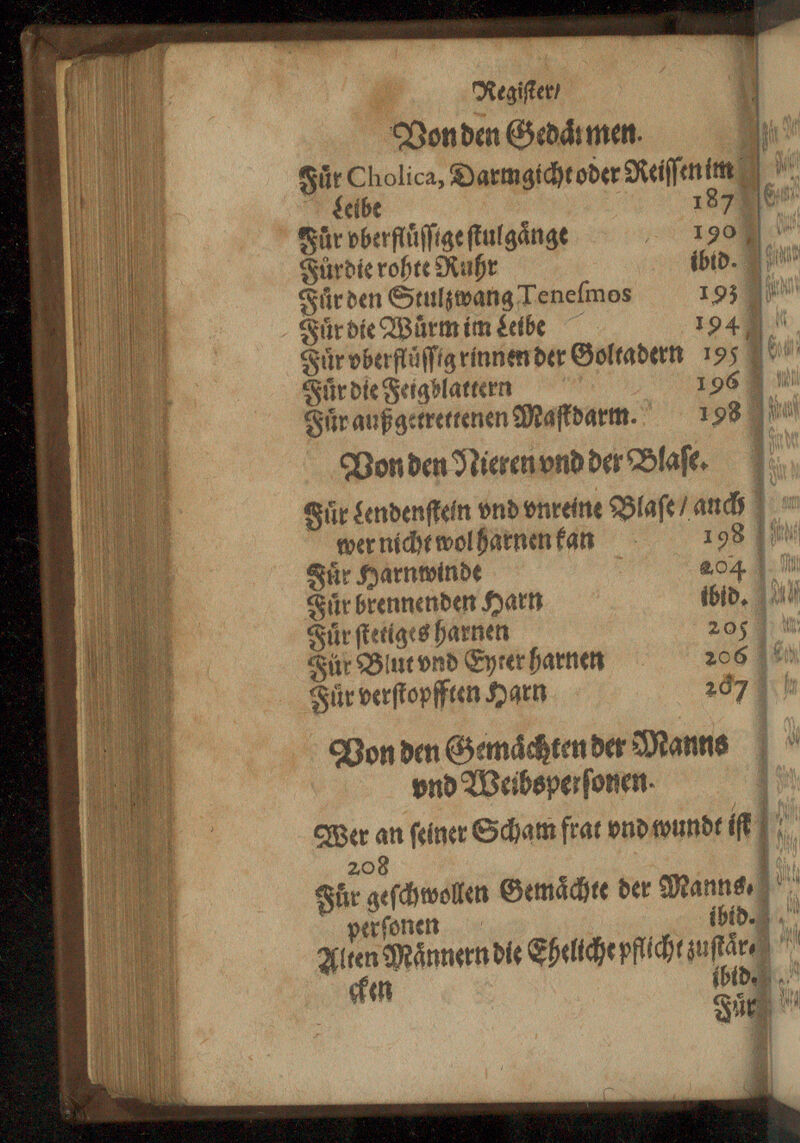 Regiſter/
Von den Gedaͤrmen.
Fuͤr Cholica, Darmgicht oder Reiſſen im
Leibe 187
Fuͤr vberfluͤſſige ſtulgaͤnge 190
Fuͤr die rohte Ruhr ibid.
Fuͤr den Stulzwang Teneſmos 193
Fuͤr die Wuͤrm im Leibe 194
Fuͤr vberfluͤſſig rinnen der Goltadern 195
Fuͤr die Feigblattern 196
Fuͤr außgetrettenen Maſtdarm. 198
Von den Nieren vnd der Blaſe.
Fuͤr Lendenſtein vnd vnreine Blaſe / auch
wer nicht wol harnen kan 198
Fuͤr Harnwinde 204
Fuͤr brennenden Harn ibid.
Fuͤr ſtetiges harnen 205
Fuͤr Blut vnd Eyter harnen 206
Fuͤr verſtopfften Harn 207
Von den Gemaͤchten der Manns
vnd Weibsperſonen.
Wer an ſeiner Scham frat vnd wundt iſt
208
Fuͤr geſchwollen Gemaͤchte der Manns⸗
perſonen ibid.
Alten Maͤnnern die Eheliche pflicht zuſtaͤr⸗
cken ibid.
Fuͤr